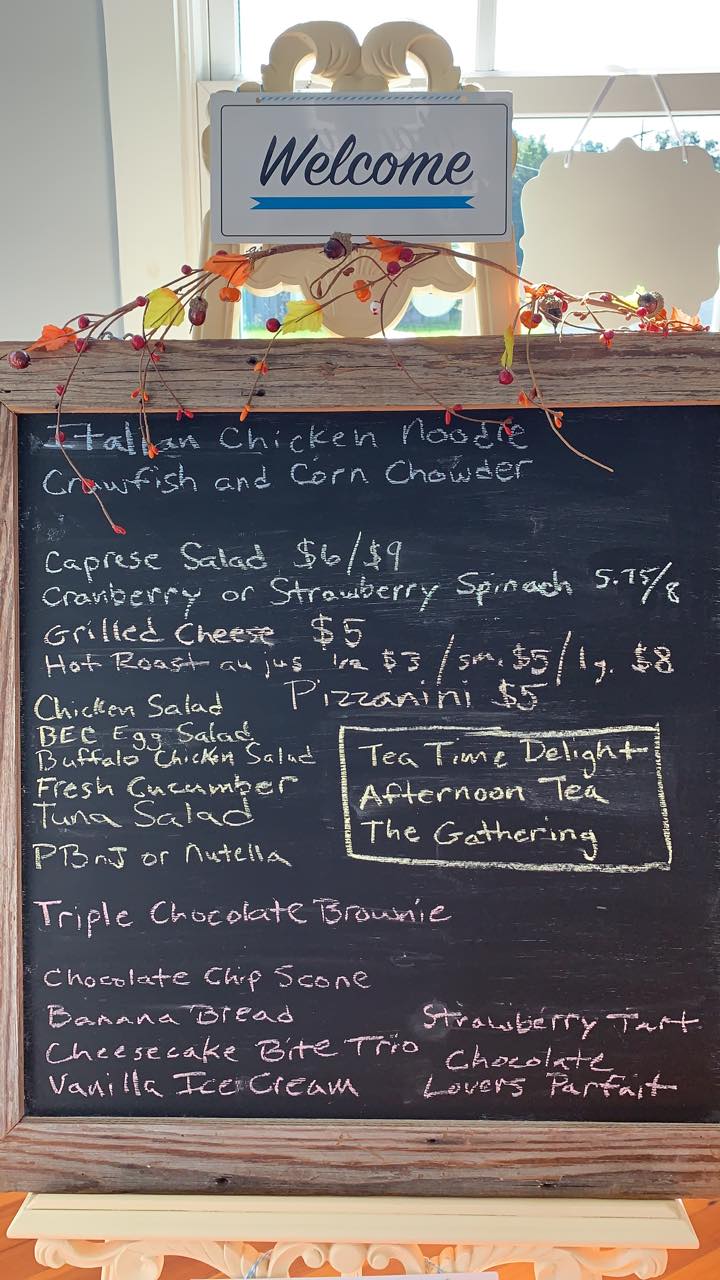 Welcome
Italian Chicken Noodle
Crawfish and Corn Chowder
Caprese Salad $6/$9
Cranberry or Strawberry Spinach 5.75/8
Grilled Cheese $5
Hot Roast au jus 1/2 $3 / sm. $5 / lg. $8
Pizzanini $5
Chicken Salad
BEC Egg Salad
Buffalo Chicken Salad
Fresh Cucumber
Tuna Salad
PBnJ or Nutella
Tea Time Delight
Afternoon Tea
The Gathering
Triple Chocolate Brownie
Chocolate Chip Scone
Banana Bread
Cheesecake Bite Trio
Vanilla Ice Cream
Strawberry Tart
Chocolate
Lovers Parfait